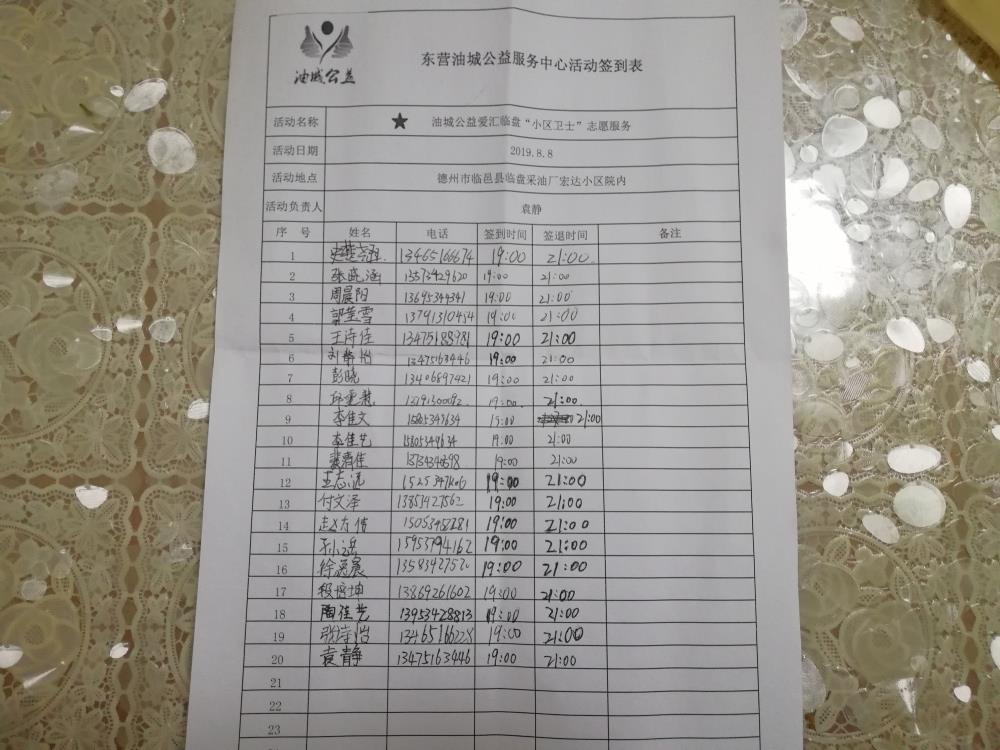 油城公益
东营油城公益服务中心活动签到表
活动名称 ★ 油城公益爱汇临盘“小区卫士”志愿服务
活动日期 2019.8.8
活动地点 德州市临邑县临盘采油厂宏达小区院内
活动负责人 袁静
序 号 姓名 电话 签到时间 签退时间 备注
1 13465166674 19:00 21:00
2 张晓涵 13573429620 19:00 21:00
3 周晨阳 13695344341 19:00 21:00
4 郭莹雪 13791310454 19:00 21:00
5 王诗佳 13475188981 19:00 21:00
6 刘静怡 13475163446 19:00 21:00
7 彭晓 13406897421 19:00 21:00
8 19:00 21:00
9 李佳文 19:00 21:00
10 李佳艺 19:00 21:00
11 19:00 21:00
12 王志远 19:00 21:00
13 付文泽 19:00 21:00
14 19:00 21:00
15 孙浩 15953794162 19:00 21:00
16 19:00 21:00
17 13869261602 19:00 21:00
18 陶佳艺 13953428813 19:00 21:00
19 张诗怡 19:00 21:00
20 袁静 13475163446 19:00 21:00
21
22
23